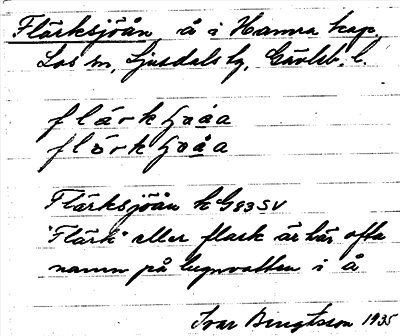 Flärksjöån, å i Hamra kap.,
Los sn, Ljusdals tg, Gävleb. l.
Flärksjöån kG83SV
"Flärk" eller flark är här ofta
namn på lugnvatten i å
Ivar Bengtsson 1935